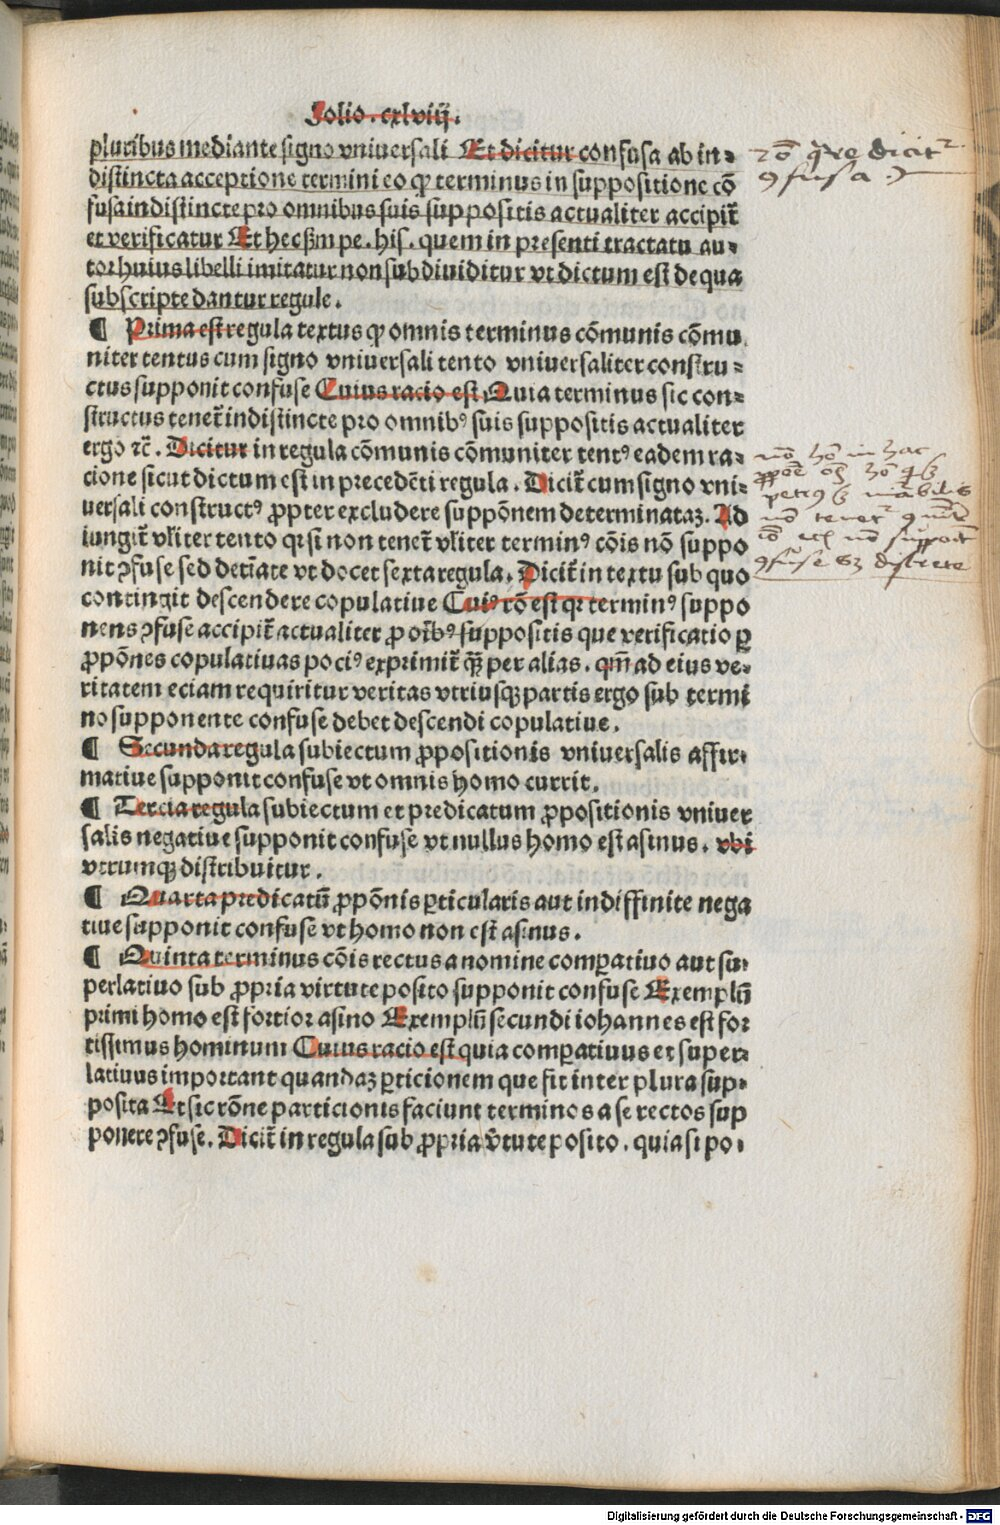 Folio. cxlviij.
pluribus mediante signo vniuersali Et dicitur confusa ab in⸗
distincta acceptione termini eo ꝙ terminus in suppositione cõ
fusa indistincte pro omnibus suis suppositis actualiter accipit̃
et verificatur Et hec ẜm pe. his. quem in presenti tractatu au⸗
tor huius libelli imitatur non subdiuiditur vt dictum est de qua
subscripte dantur regule.
¶ Prima est regula textus ꝙ omnis terminus cõmunis cõmu
niter tentus cum signo vniuersali tento vniuersaliter constru⸗
ctus supponit confuse Cuius racio est Quia terminus sic con⸗
structus tenet̃ indistincte pro omnibꝰ suis suppositis actualiter
ergo ⁊c̃. Dicitur in regula cõmunis cõmuniter tentꝰ eadem ra⸗
cione sicut dictum est in precedẽti regula. Dicit̃ cum signo vni⸗
uersali constructꝰ ꝓpter excludere suppõnem determinataꝫ. Ad
iungit̃ vl̃iter tento qꝛ si non tenet̃ vl̃iter terminꝰ cõis nõ suppo
nit ꝯfuse sed det̃iate vt docet sexta regula. Dicit̃ in textu sub quo
contingit descendere copulatiue Cuiꝰ rõ est qꝛ terminꝰ suppo
nens ꝯfuse accipit̃ actualiter ꝓ oĩbꝰ suppositis que verificatio ꝑ
ꝓpõnes copulatiuas pociꝰ exprimit̃ qᷓꝫ per alias. qm̃ ad eius ve⸗
ritatem eciam requiritur veritas vtriusqꝫ partis ergo sub termi
no supponente confuse debet descendi copulatiue.
¶ Secunda regula subiectum ꝓpositionis vniuersalis affir⸗
matiue supponit confuse vt omnis homo currit.
¶ Tercia regula subiectum et predicatum ꝓpositionis vniuer
salis negatiue supponit confuse vt nullus homo est asinus. vbi
vtrumqꝫ distribuitur.
¶ Quarta predicatũ ꝓpõnis ꝑticularis aut indiffinite nega
tiue supponit confuse vt homo non est asinus.
¶ Quinta terminus cõis rectus a nomine comꝑatiuo aut su⸗
perlatiuo sub ꝓpria virtute posito supponit confuse Exemplũ
primi homo est fortior asino Exemplũ secundi iohannes est for
tissimus hominum Cuius racio est quia comꝑatiuus et super⸗
latiuus important quandaꝫ ꝑticionem que fit inter plura sup⸗
posita Et sic rõne particionis faciunt terminos a se rectos sup
ponere ꝯfuse. Dicit̃ in regula sub ꝓpria ṽtute posito. quia si po⸗
dicit
ꝯfusa
nõ hõ in hac
nõ
ꝯfuse discrete
Digitalisierung gefördert durch die Deutsche Forschungsgemeinschaft - DFG